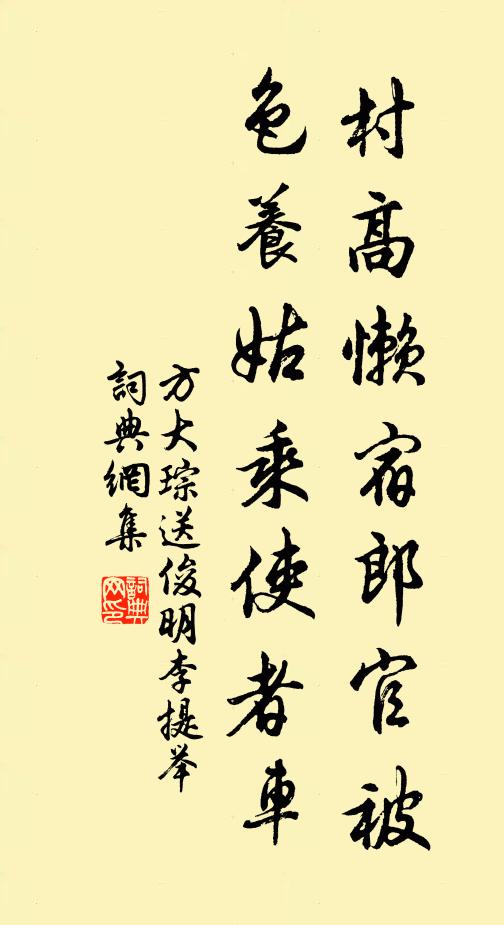 村高懒宿郎官被
色養姑乘使者車
方大琮送俊明李提举
詞典網集
詞典
网印